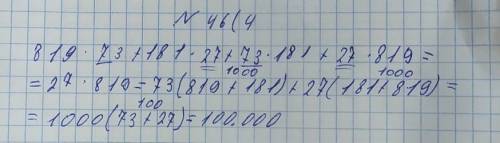 N 46(4
819 · 73 + 181 · 27 + 73 · 181 + 27 · 819 =
1000 1000
= 27 · 819 = 73(819 + 181) + 27(181 + 819) =
100
= 1000(73 + 27) = 100.000